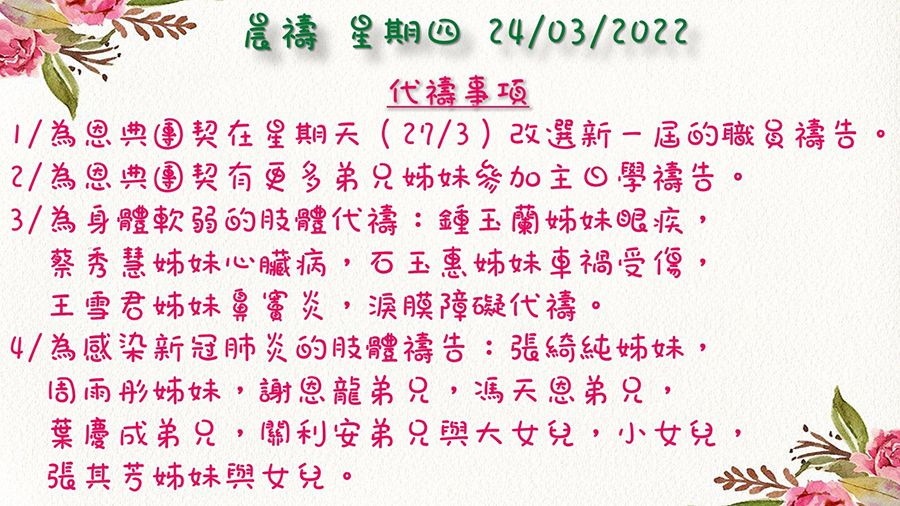 晨禱 星期四 24/03/2022
代禱事項
1/為恩典團契在星期天（27/3）改選新一屆的職員禱告。
2/為恩典團契有更多弟兄姊妹參加主日學禱告。
3/為身體軟弱的肢體代禱：鍾玉蘭姊妹眼疾，
蔡秀慧姊妹心臟病，石玉惠姊妹車禍受傷，
王雪君姊妹鼻竇炎，淚膜障礙代禱。
4/為感染新冠肺炎的肢體禱告：張綺純姊妹，
周雨彤姊妹，謝恩龍弟兄，馮天恩弟兄，
葉慶成弟兄，關利安弟兄與大女兒，小女兒，
張其芳姊妹與女兒。